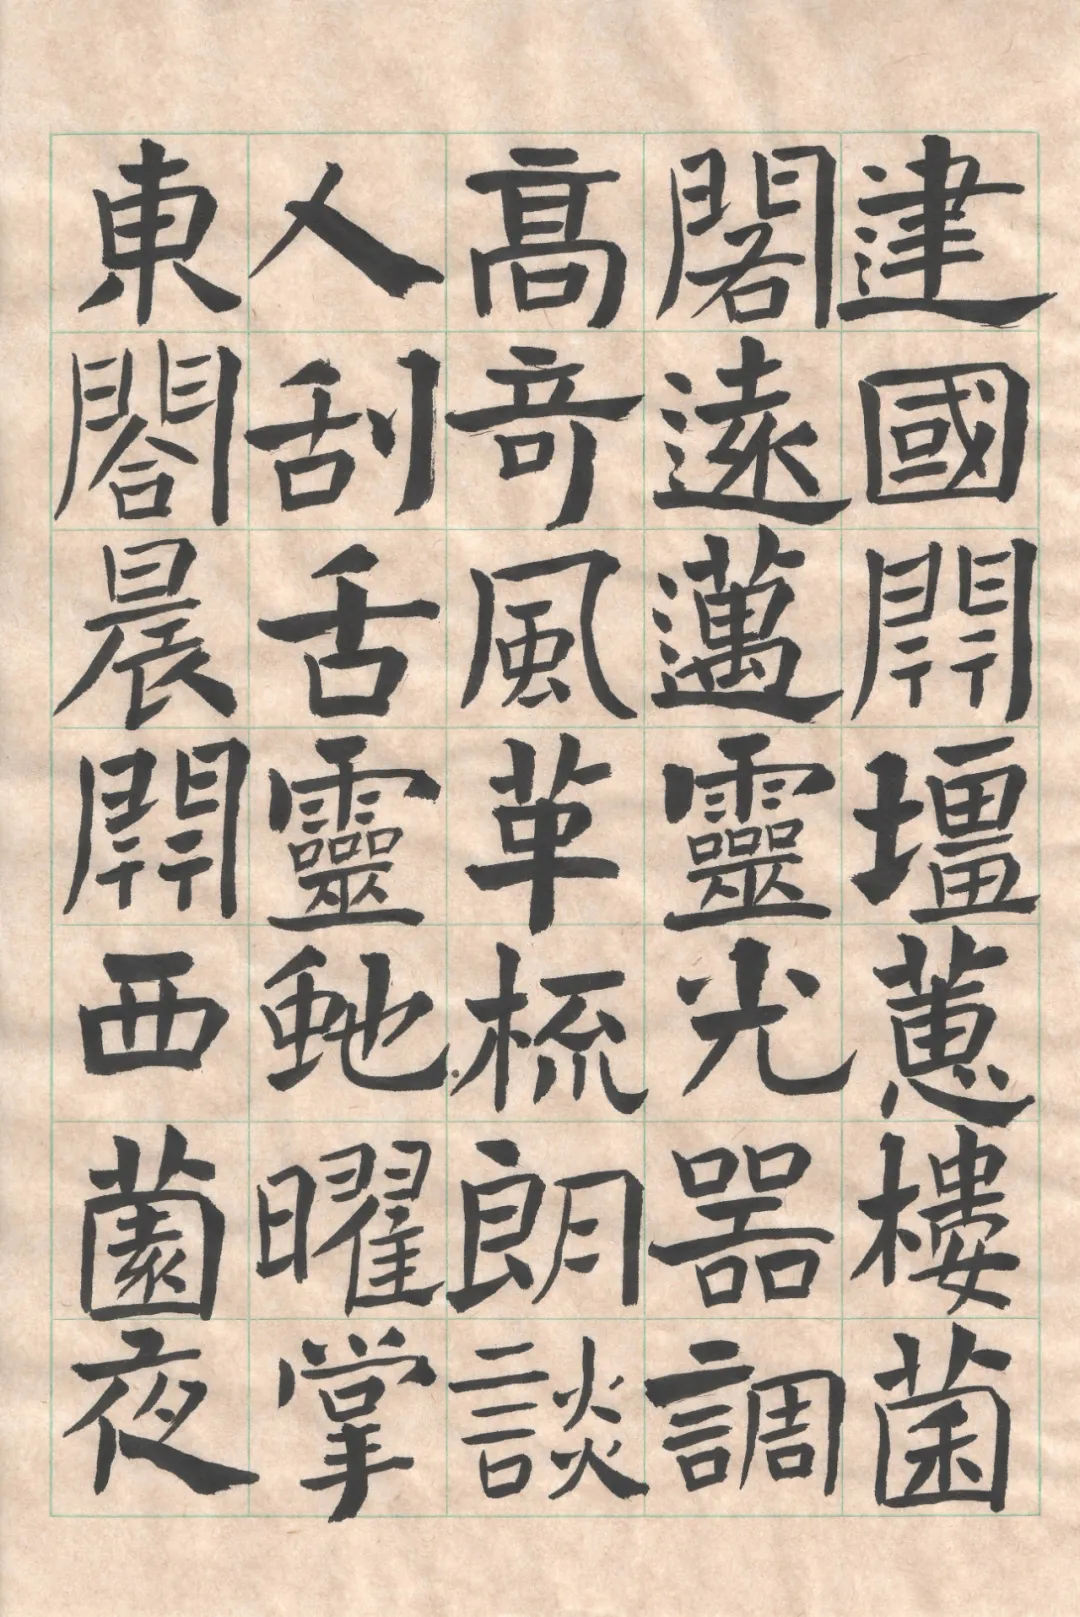 建國開壇蕙樓菌
閣遠邁靈光器調
高奇風革梳朗談
人刮舌靈虵曜掌
東閣晨開西園夜